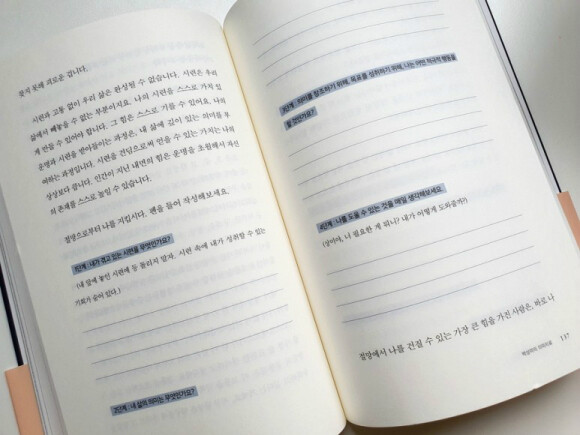 찾지 못해 괴로운 겁니다.
시련과 고통 없이 우리 삶은 완성될 수 없습니다. 시련은 우리
삶에서 빼놓을 수 없는 부분이지요. 나의 시련을 스스로 가치 있
게 만들 수 있어야 합니다. 그 힘은 스스로 기를 수 있어요. 나의
운명과 시련을 받아들이는 과정은, 내 삶에 깊이 있는 의미를 부
여하는 과정입니다. 시련을 견딤으로써 얻을 수 있는 가치는 나의
상상보다 큽니다. 인간이 지닌 내면의 힘은 운명을 초월해서 자신
의 존재를 스스로 높일 수 있습니다.
절망으로부터 나를 지킵시다. 펜을 들어 작성해보세요.
1단계 : 내가 겪고 있는 시련을 무엇인가요?
(내 앞에 놓인 시련에 등 돌리지 말자. 시련 속에 내가 성취할 수 있는
기회가 숨어 있다.)
2단계 : 내 삶의 의미는 무엇인가요?
3단계 : 의미를 창조하기 위해, 목표를 성취하기 위해, 나는 어떤 적극적 행동을
할 것인가요?
4단계 : 나를 도울 수 있는 것을 매일 생각해보세요.
(상아야, 나 필요한 게 뭐니? 내가 어떻게 도와줄까?)
절망에서 나를 건질 수 있는 가장 큰 힘을 가진 사람은, 바로 나
117